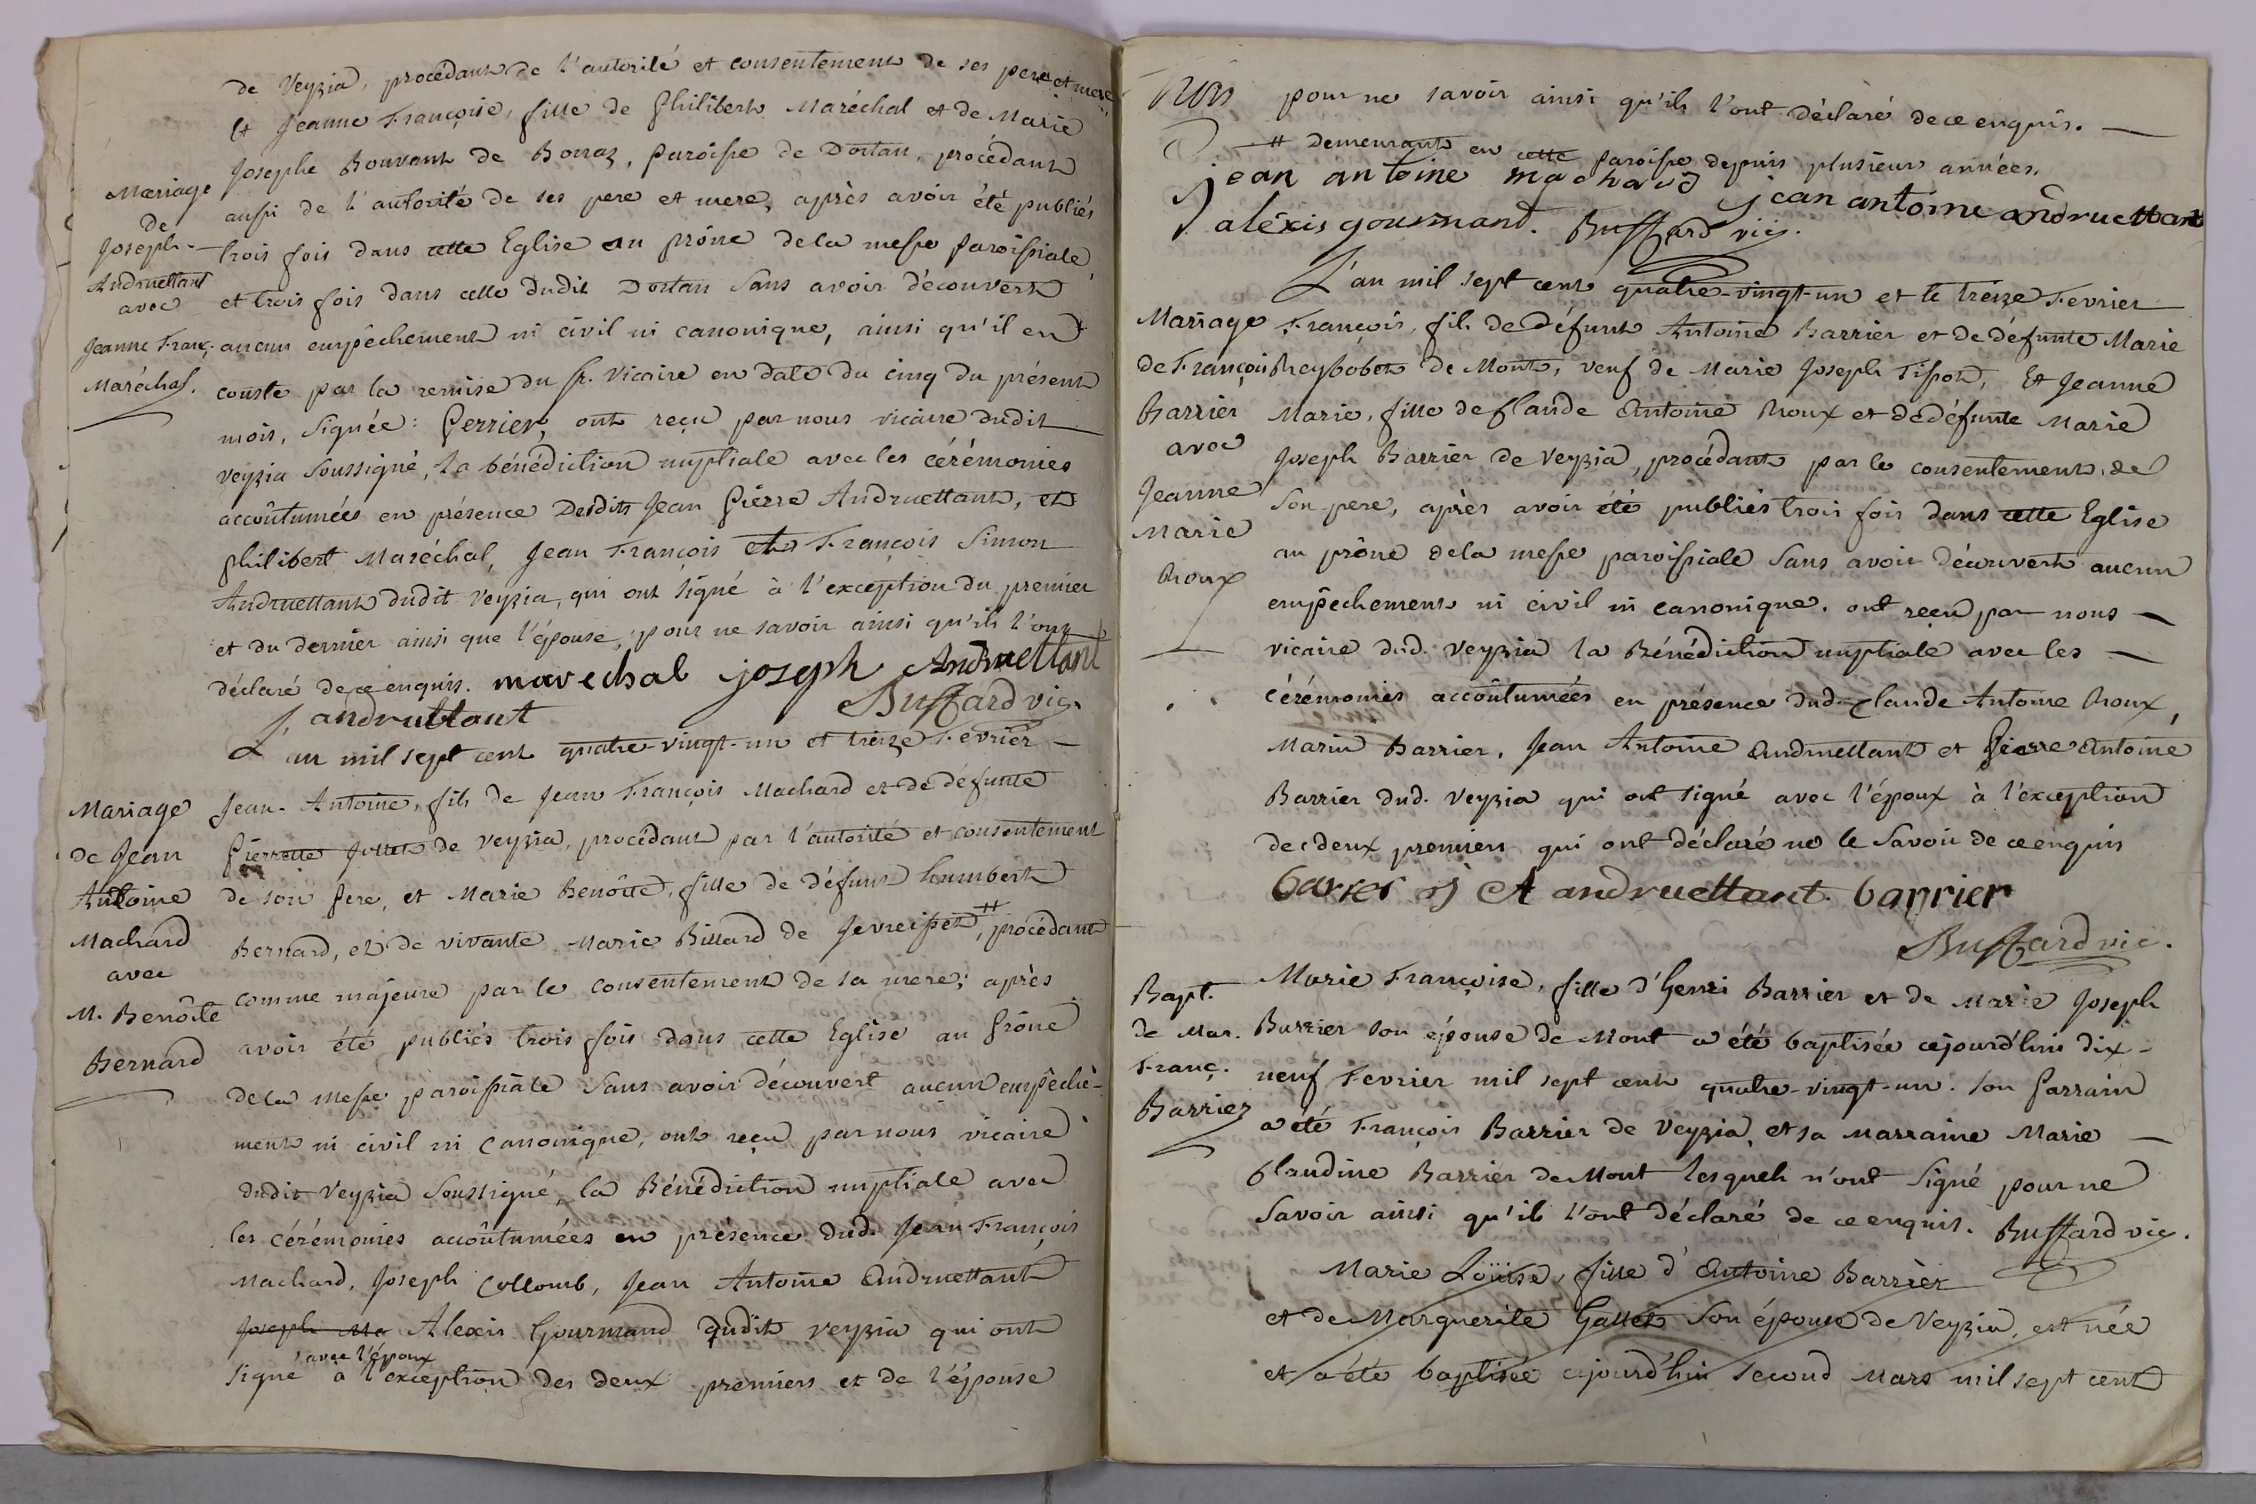 de Veyzia, procédant de l'autorité et consentement de ses pere et mere
Et Jeanne Françoise, fille de Philibert Maréchal et de Marie
Josephe Bouvant de Bonaz, paroisse de Dortan, procédant
Mariage
aussi de l'autorité de ses pere et mere, après avoir été publiés
de
Joseph
trois fois dans cette Eglise au prône de la messe paroissiale,
Andruettant
avec
et trois fois dans celle dudit Dortan sans avoir découvert
Jeanne Franç.
aucun empêchement ni civil ni canonique, ainsi qu'il en
Maréchal.
conste par la remise du Sr. Vicaire en date du cinq du présent
mois, signée: Perrier, ont reçu par nous vicaire dudit
Veyzia soussigné, la bénédiction nuptiale avec les cérémonies
accoûtumées en présence Desdits Jean Pierre Andruettant, et
Philibert Maréchal, Jean François et François Simon
Andruettant dudit Veyzia, qui ont signé à l'exception du premier
et du dernier ainsi que l'épouse, pour ne savoir ainsi qu'ils l'ont
déclaré de ce enquis. marechal joseph Andruettant
andruttant Buffard vic.
L'an mil sept cent quatre-vingt-un et treize Fevrier
Mariage
Jean-Antoine, fils de Jean François Machard et de défunte
de Jean
Pierrette Jollet de Veyzia, procédant par l'autorité et consentement
Antoine
de son Pere, et Marie Benôite, fille de défunt humbert
Machard
Bernard, et de vivante Marie Billard de Jevreisset, # procédant
avec
comme majeure par le consentement de sa mere; après
M. Benôite
avoir été publiés trois fois dans cette Eglise au Prône
Bernard
de la messe paroissiale sans avoir découvert aucun empêche-
ment ni civil ni canonique, ont reçu par nous vicaire
dudit Veyzia soussigné, la Bénédiction nuptiale avec
les cérémonies accoûtumées en présence dud. Jean François
Machard, Joseph Collomb, Jean Antoine Andruettant
Joseph Ma Alexis Gourmand dudit Veyzia qui ont
avec l'époux
signé à l'exception des deux premiers et de l'épouse
pour ne savoir ainsi qu'ils l'ont déclaré de ce enquis.
# demeurante en cette paroisse depuis plusieurs années.
jean antoine machard jean antoine andruettant
aléxis gourmand. Buffard vic.
L'an mil sept cent quatre-vingt-un et le treize Fevrier
Mariage
François, fils de défunt Antoine Barrier et de défunte Marie
de François
Reybobet de Mont, veuf de Marie Joseph Tissot, Et Jeanne
Barrier
Marie, fille de Claude Antoine Roux et de défunte Marie
avec
Joseph Barrier de Veyzia, procédant par le consentement de
Jeanne
son pere, après avoir été publiés trois fois dans cette Eglise
Marie
au prône de la messe paroissiale sans avoir découvert aucun
Roux
empêchement ni civil ni canonique. ont reçu par nous
vicaire dud. Veyzia la Bénédiction nuptiale avec les
cérémonies accoûtumées en présence dud. Claude Antoine Roux,
Marin Barrier, Jean Antoine Andruettant et Pierre Antoine
Barrier dud. Veyzia qui ont signé avec l'époux à l'exception
des deux premiers qui ont déclaré ne le savoir de ce enquis
barier J A andruettant. barrier
Buffard vic.
Bapt.
Marie Françoise, fille d'Henri Barrier et de Marie Joseph
de Mar.
Burrier son épouse de Mont a été baptisée cejourd'hui dix-
Franç.
neuf Fevrier mil sept cent quatre-vingt-un. son Parrain
Barrier
a été François Barrier de Veyzia et sa Marraine Marie
Claudine Barrier de Mont lesquels n'ont signé pour ne
savoir ainsi qu'ils l'ont déclaré de ce enquis. Buffard vic.
Marie Loüise, fille d'Antoine Barrier
et de Marguerite Gallet son épouse de Veyzia, est née
et a été baptisée cejourd'hui second Mars mil sept cent